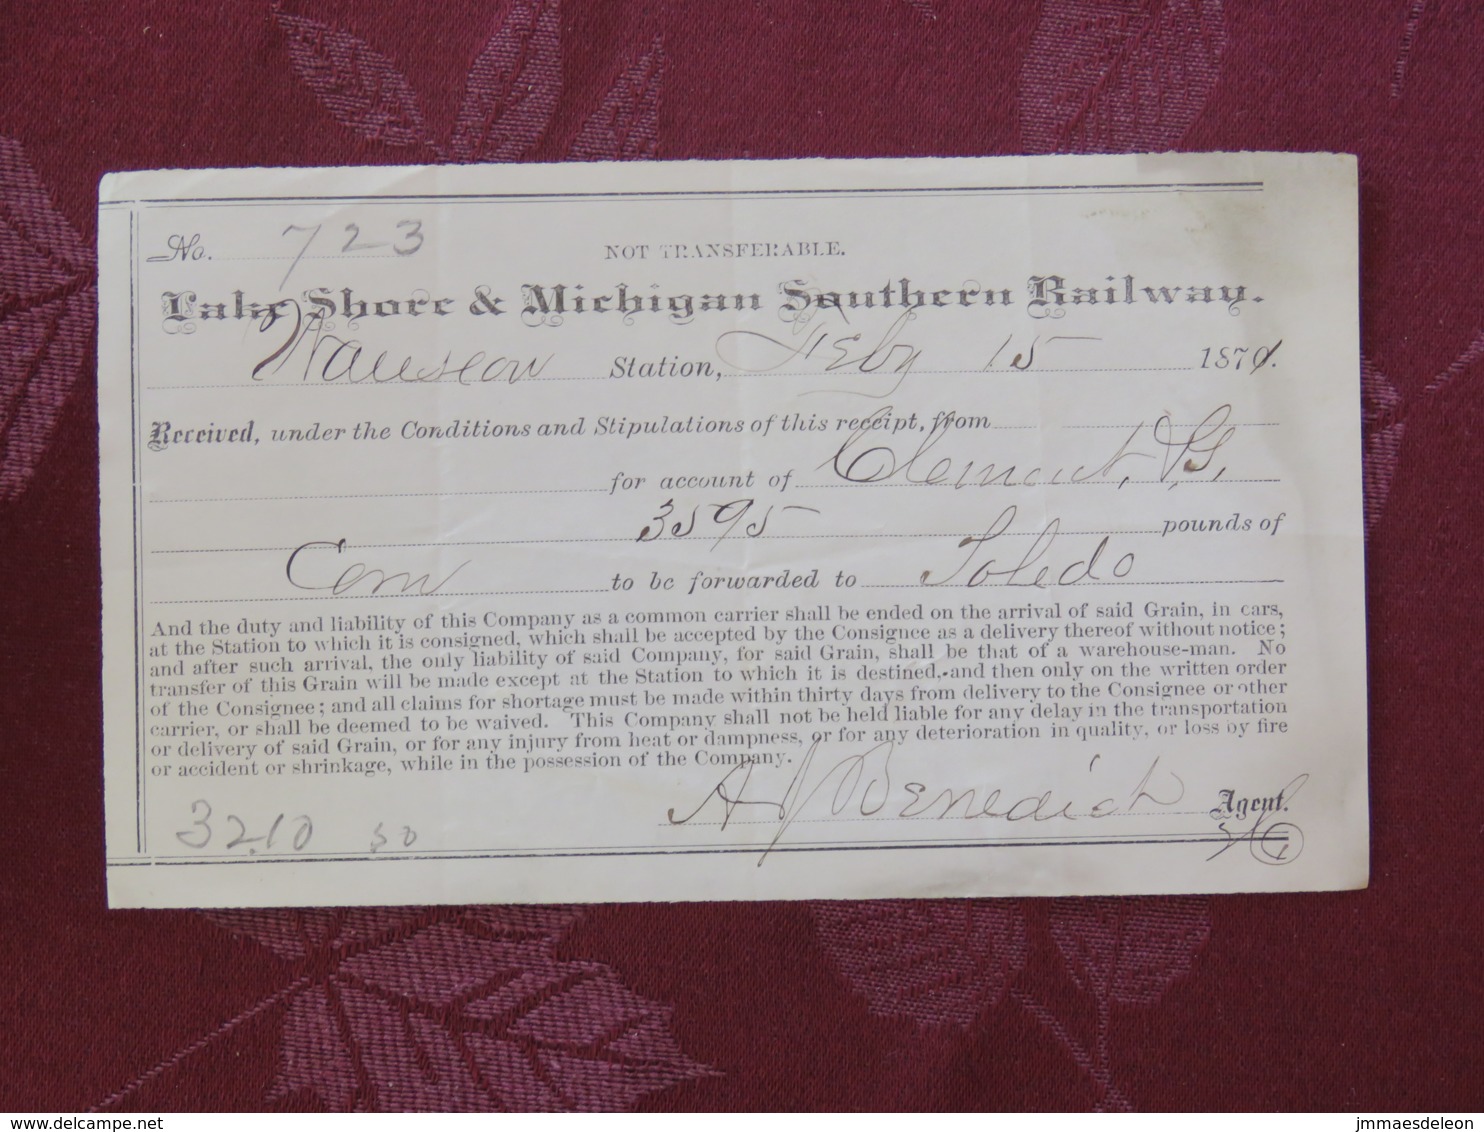 No. 723
NOT TRANSFERABLE.
Lake Shore & Michigan Southern Railway.
Wauseon Station, Feby 15 1871.
Received, under the Conditions and Stipulations of this receipt, from
for account of Clement, &
3595 pounds of
Corn to be forwarded to Toledo
And the duty and liability of this Company as a common carrier shall be ended on the arrival of said Grain, in cars,
at the Station to which it is consigned, which shall be accepted by the Consignee as a delivery thereof without notice;
and after such arrival, the only liability of said Company, for said Grain, shall be that of a warehouse-man. No
transfer of this Grain will be made except at the Station to which it is destined, and then only on the written order
of the Consignee; and all claims for shortage must be made within thirty days from delivery to the Consignee or other
carrier, or shall be deemed to be waived. This Company shall not be held liable for any delay in the transportation
or delivery of said Grain, or for any injury from heat or dampness, or for any deterioration in quality, or loss by fire
or accident or shrinkage, while in the possession of the Company.
A J Benedict Agent.
32.10 50
www.delcampe.net jmmaesdeleon